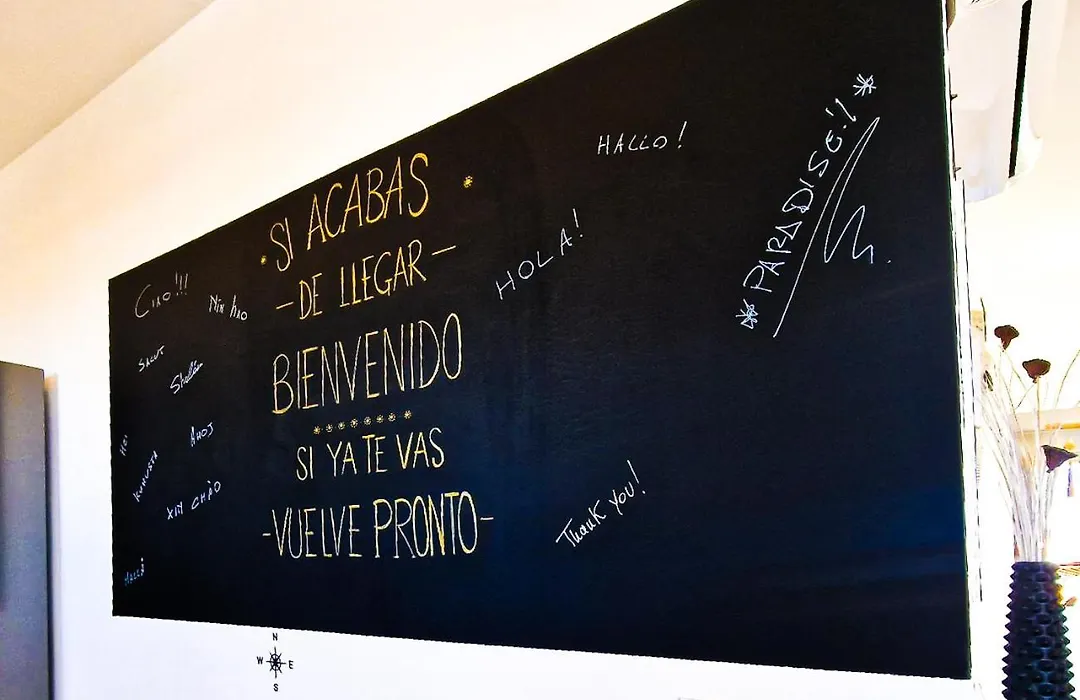 SI ACABAS
- DE LLEGAR -
BIENVENIDO
SI YA TE VAS
- VUELVE PRONTO -
CIAO!!!
Nin hao
SALUT
AHOJ
KUMUSTA
XIN CHÀO
HALLO!
HOLA!
PARADISE!
Thank You!
N
W E
S